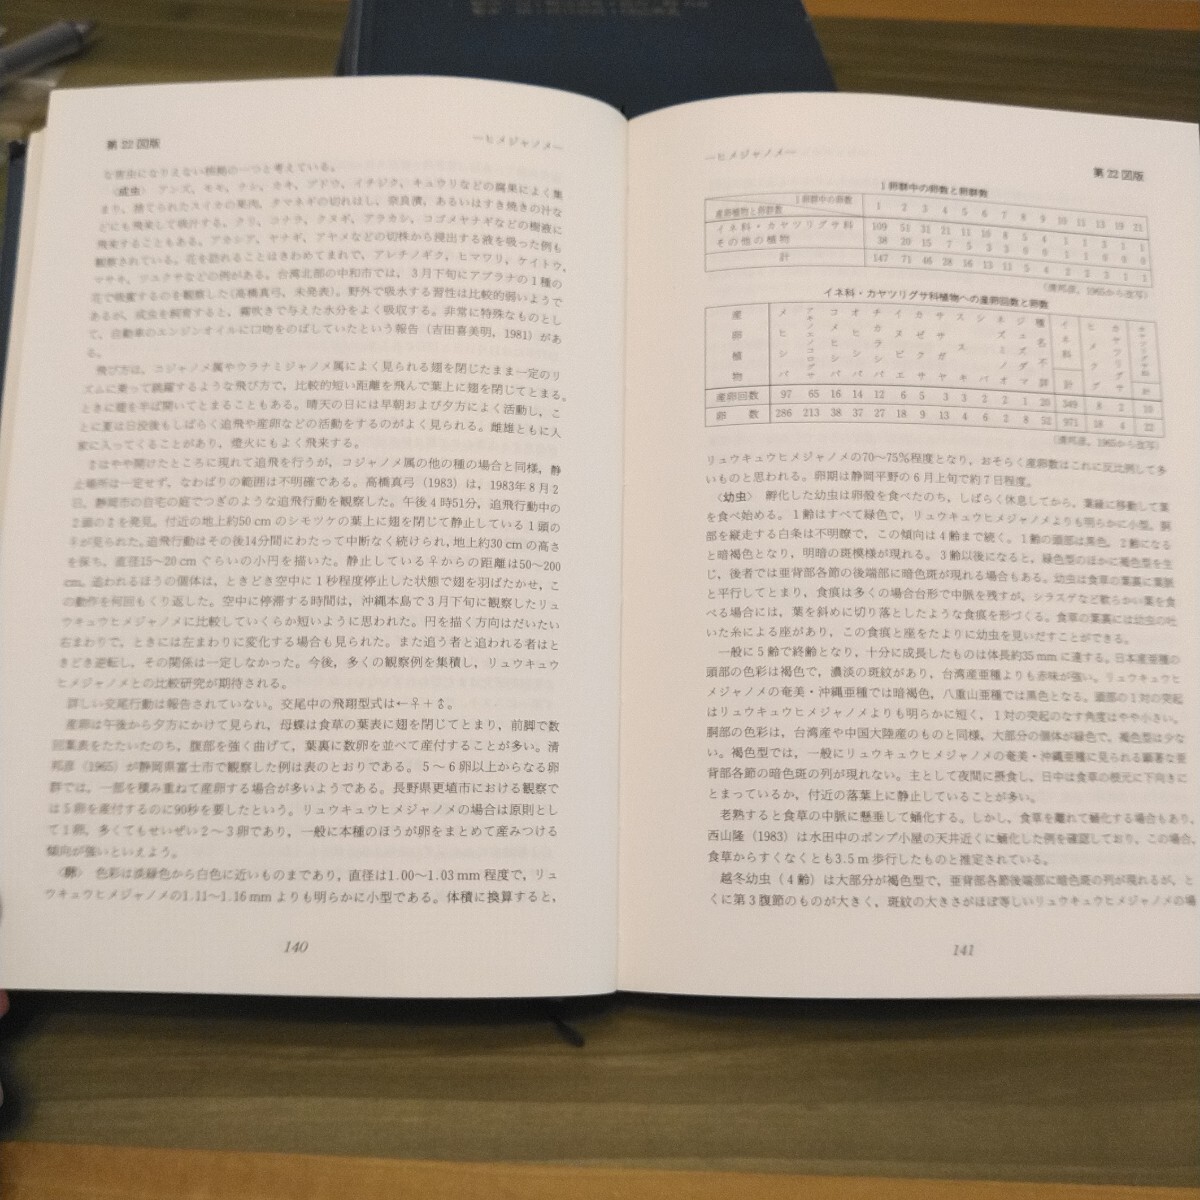 第22図版
―ヒメジャノメ―
な害虫になりえない理由の一つと考えている。
〈成虫〉 アンズ、モモ、ナシ、カキ、ブドウ、イチジク、キュウリなどの腐果によく集
まり、捨てられたスイカの果肉、タマネギの切れはし、奈良漬、あるいはすき焼きの汁な
どにも飛来して吸汁する。クリ、コナラ、クヌギ、アラカシ、コゴメヤナギなどの樹液に
飛来することもある。アカシア、ヤナギ、アヤメなどの切株から浸出する液を吸った例も
観察されている。花を訪れることはきわめてまれで、アレチノギク、ヒマワリ、ケイトウ、
マサキ、ツユクサなどの例がある。台湾北部の中和市では、3月下旬にアブラナの1種の
花で吸蜜するのを観察した(高橋真弓、未発表)。野外で吸水する習性は比較的弱いようで
あるが、成虫を飼育すると、霧吹きで与えた水分をよく吸収する。非常に特殊なものとし
て、自動車のエンジンオイルに口吻をのばしていたという報告(吉田喜美明, 1981)があ
る。
飛び方は、コジャノメ属やウラナミジャノメ属によく見られる翅を閉じたまま一定のリ
ズムに乗って跳躍するような飛び方で、比較的短い距離を飛んで葉上に翅を閉じてとまる。
ときに翅を半ば開いてとまることもある。晴天の日には早朝および夕方によく活動し、こ
とに夏は日没後もしばらく追飛や産卵などの活動をするのがよく見られる。雌雄ともに人
家に入ってくることがあり、燈火にもよく飛来する。
♂はやや開けたところに現れて追飛を行うが、コジャノメ属の他の種の場合と同様、静
止場所は一定せず、なわばりの範囲は不明確である。高橋真弓(1983)は、1983年8月2
日、静岡市の自宅の庭でつぎのような追飛行動を観察した。午後4時51分、追飛行動中の
2頭の♂を発見。付近の地上約50cmのシモツケの葉上に翅を閉じて静止している1頭の
♀が見られた。追飛行動はその後14分間にわたって中断なく続けられ、地上約30cmの高さ
を保ち、直径15～20cmぐらいの小円を描いた。静止している♀からの距離は50～200
cm。追われるほうの個体は、ときどき空中に1秒程度停止した状態で翅を羽ばたかせ、こ
の動作を何回もくり返した。空中に停滞する時間は、沖縄本島で3月下旬に観察したリュ
ウキュウヒメジャノメに比較していくらか短いように思われた。円を描く方向はだいたい
右まわりで、ときには左まわりに変化する場合も見られた。また追う者と追われる者はと
きどき逆転し、その関係は一定しなかった。今後、多くの観察例を集積し、リュウキュウ
ヒメジャノメとの比較研究が期待される。
詳しい交尾行動は報告されていない。交尾中の飛翔型式は←♀+♂。
産卵は午後から夕方にかけて見られ、母蝶は食草の葉表に翅を閉じてとまり、前脚で数
回葉表をたたいたのち、腹部を強く曲げて、葉裏に数卵を並べて産付することが多い。清
邦彦(1965)が静岡県富士市で観察した例は表のとおりである。5～6卵以上からなる卵
群では、一部を積み重ねて産卵する場合が多いようである。長野県更埴市における観察で
は5卵を産付するのに90秒を要したという。リュウキュウヒメジャノメの場合は原則とし
て1卵、多くてもせいぜい2～3卵であり、一般に本種のほうが卵をまとめて産みつける
傾向が強いといえよう。
〈卵〉 色彩は淡緑色から白色に近いものまであり、直径は1.00～1.03mm程度で、リュ
ウキュウヒメジャノメの1.11～1.16mmよりも明らかに小型である。体積に換算すると、
140
―ヒメジャノメ―
第22図版
1卵群中の卵数と卵群数
1卵群中の卵数 1 2 3 4 5 6 7 8 9 10 11 13 19 21
産卵植物と卵群数
イネ科・カヤツリグサ科 109 51 31 21 11 16 8 5 4 1 1 3 1 1
その他の植物 38 20 15 7 5
計 147 71 46 28 16 13 11 5 4 2 2 3 1 1
(清邦彦, 1965から改写)
イネ科・カヤツリグサ科植物への産卵回数と卵数
産卵植物
産卵回数 97 65 16 14 12 6 5 3 3 2 2 1 20 349 8 2 10
卵数 286 213 38 37 27 18 9 13 4 6 2 8 52 971 18 4 22
(清邦彦, 1965から改写)
リュウキュウヒメジャノメの70～75%程度となり、おそらく産卵数はこれに反比例して多
いものと思われる。卵期は静岡平野の6月上旬で約7日程度。
〈幼虫〉 孵化した幼虫は卵殻を食べたのち、しばらく休息してから、葉縁に移動して葉
を食べ始める。1齢はすべて緑色で、リュウキュウヒメジャノメよりも明らかに小型。胴
部を縦走する白条は不明瞭で、この傾向は4齢まで続く。1齢の頭部は黒色、2齢になる
と暗褐色となり、明暗の斑模様が現れる。3齢以後になると、緑色型のほかに褐色型を生
じ、後者では亜背部各節の後端部に暗色斑が現れる場合もある。幼虫は食草の葉裏に葉脈
と平行してとまり、食痕は多くの場合台形で中脈を残すが、シラスゲなど軟らかい葉を食
べる場合には、葉を斜めに切り落としたような食痕を形づくる。食草の葉裏には幼虫の吐
いた糸による座があり、この食痕と座をたよりに幼虫を見いだすことができる。
一般に5齢で終齢となり、十分に成長したものは体長約35mmに達する。日本産亜種の
頭部の色彩は褐色で、濃淡の斑紋があり、台湾産亜種よりも赤味が強い。リュウキュウヒ
メジャノメの奄美・沖縄亜種では暗褐色、八重山亜種では黒色となる。頭部の1対の突起
はリュウキュウヒメジャノメよりも明らかに短く、1対の突起のなす角度はやや小さい。
胴部の色彩は、台湾産や中国大陸産のものと同様、大部分の個体が緑色で、褐色型は少な
い。褐色型では、一般にリュウキュウヒメジャノメの奄美・沖縄亜種に見られる顕著な亜
背部各節の暗色斑の列が現れない。主として夜間に摂食し、日中は食草の根元に下向きに
とまっているか、付近の落葉上に静止していることが多い。
老熟すると食草の中脈に懸垂して蛹化する。しかし、食草を離れて蛹化する場合もあり、
西山隆(1983)は水田中のポンプ小屋の天井近くに蛹化した例を確認しており、この場合、
食草からすくなくとも3.5m歩行したものと推定されている。
越冬幼虫(4齢)は大部分が褐色型で、亜背部各節後端部に暗色斑の列が現れるが、と
くに第3腹節のものが大きく、斑紋の大きさがほぼ等しいリュウキュウヒメジャノメの場
141